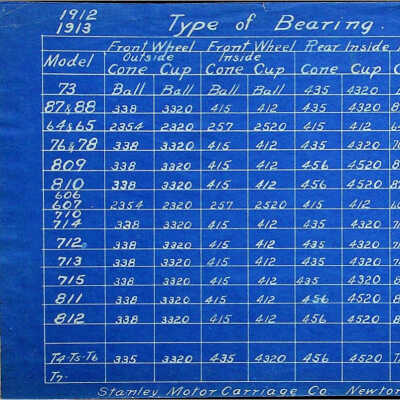 1912
1913 Type of Bearing.
Front Wheel Front Wheel Rear Inside
Outside Inside
Model Cone Cup Cone Cup Cone Cup
73 Ball Ball Ball Ball 435 4320
87&88 338 3320 415 412 435 4320
64&65 2354 2320 257 2520 415 412
76&78 338 3320 415 412 435 4320
809 338 3320 415 412 456 4520
810 338 3320 415 412 456 4520
606
607 2354 2320 257 2520 415 412
710
714 338 3320 415 412 435 4320
712 338 3320 415 412 435 4320
713 338 3320 415 412 435 4320
715 338 3320 415 412 435 4320
811 338 3320 415 412 456 4520
812 338 3320 415 412 456 4520
T4-T5-T6 335 3320 435 4320 456 4520
T7-
Stanley Motor Carriage Co Newton